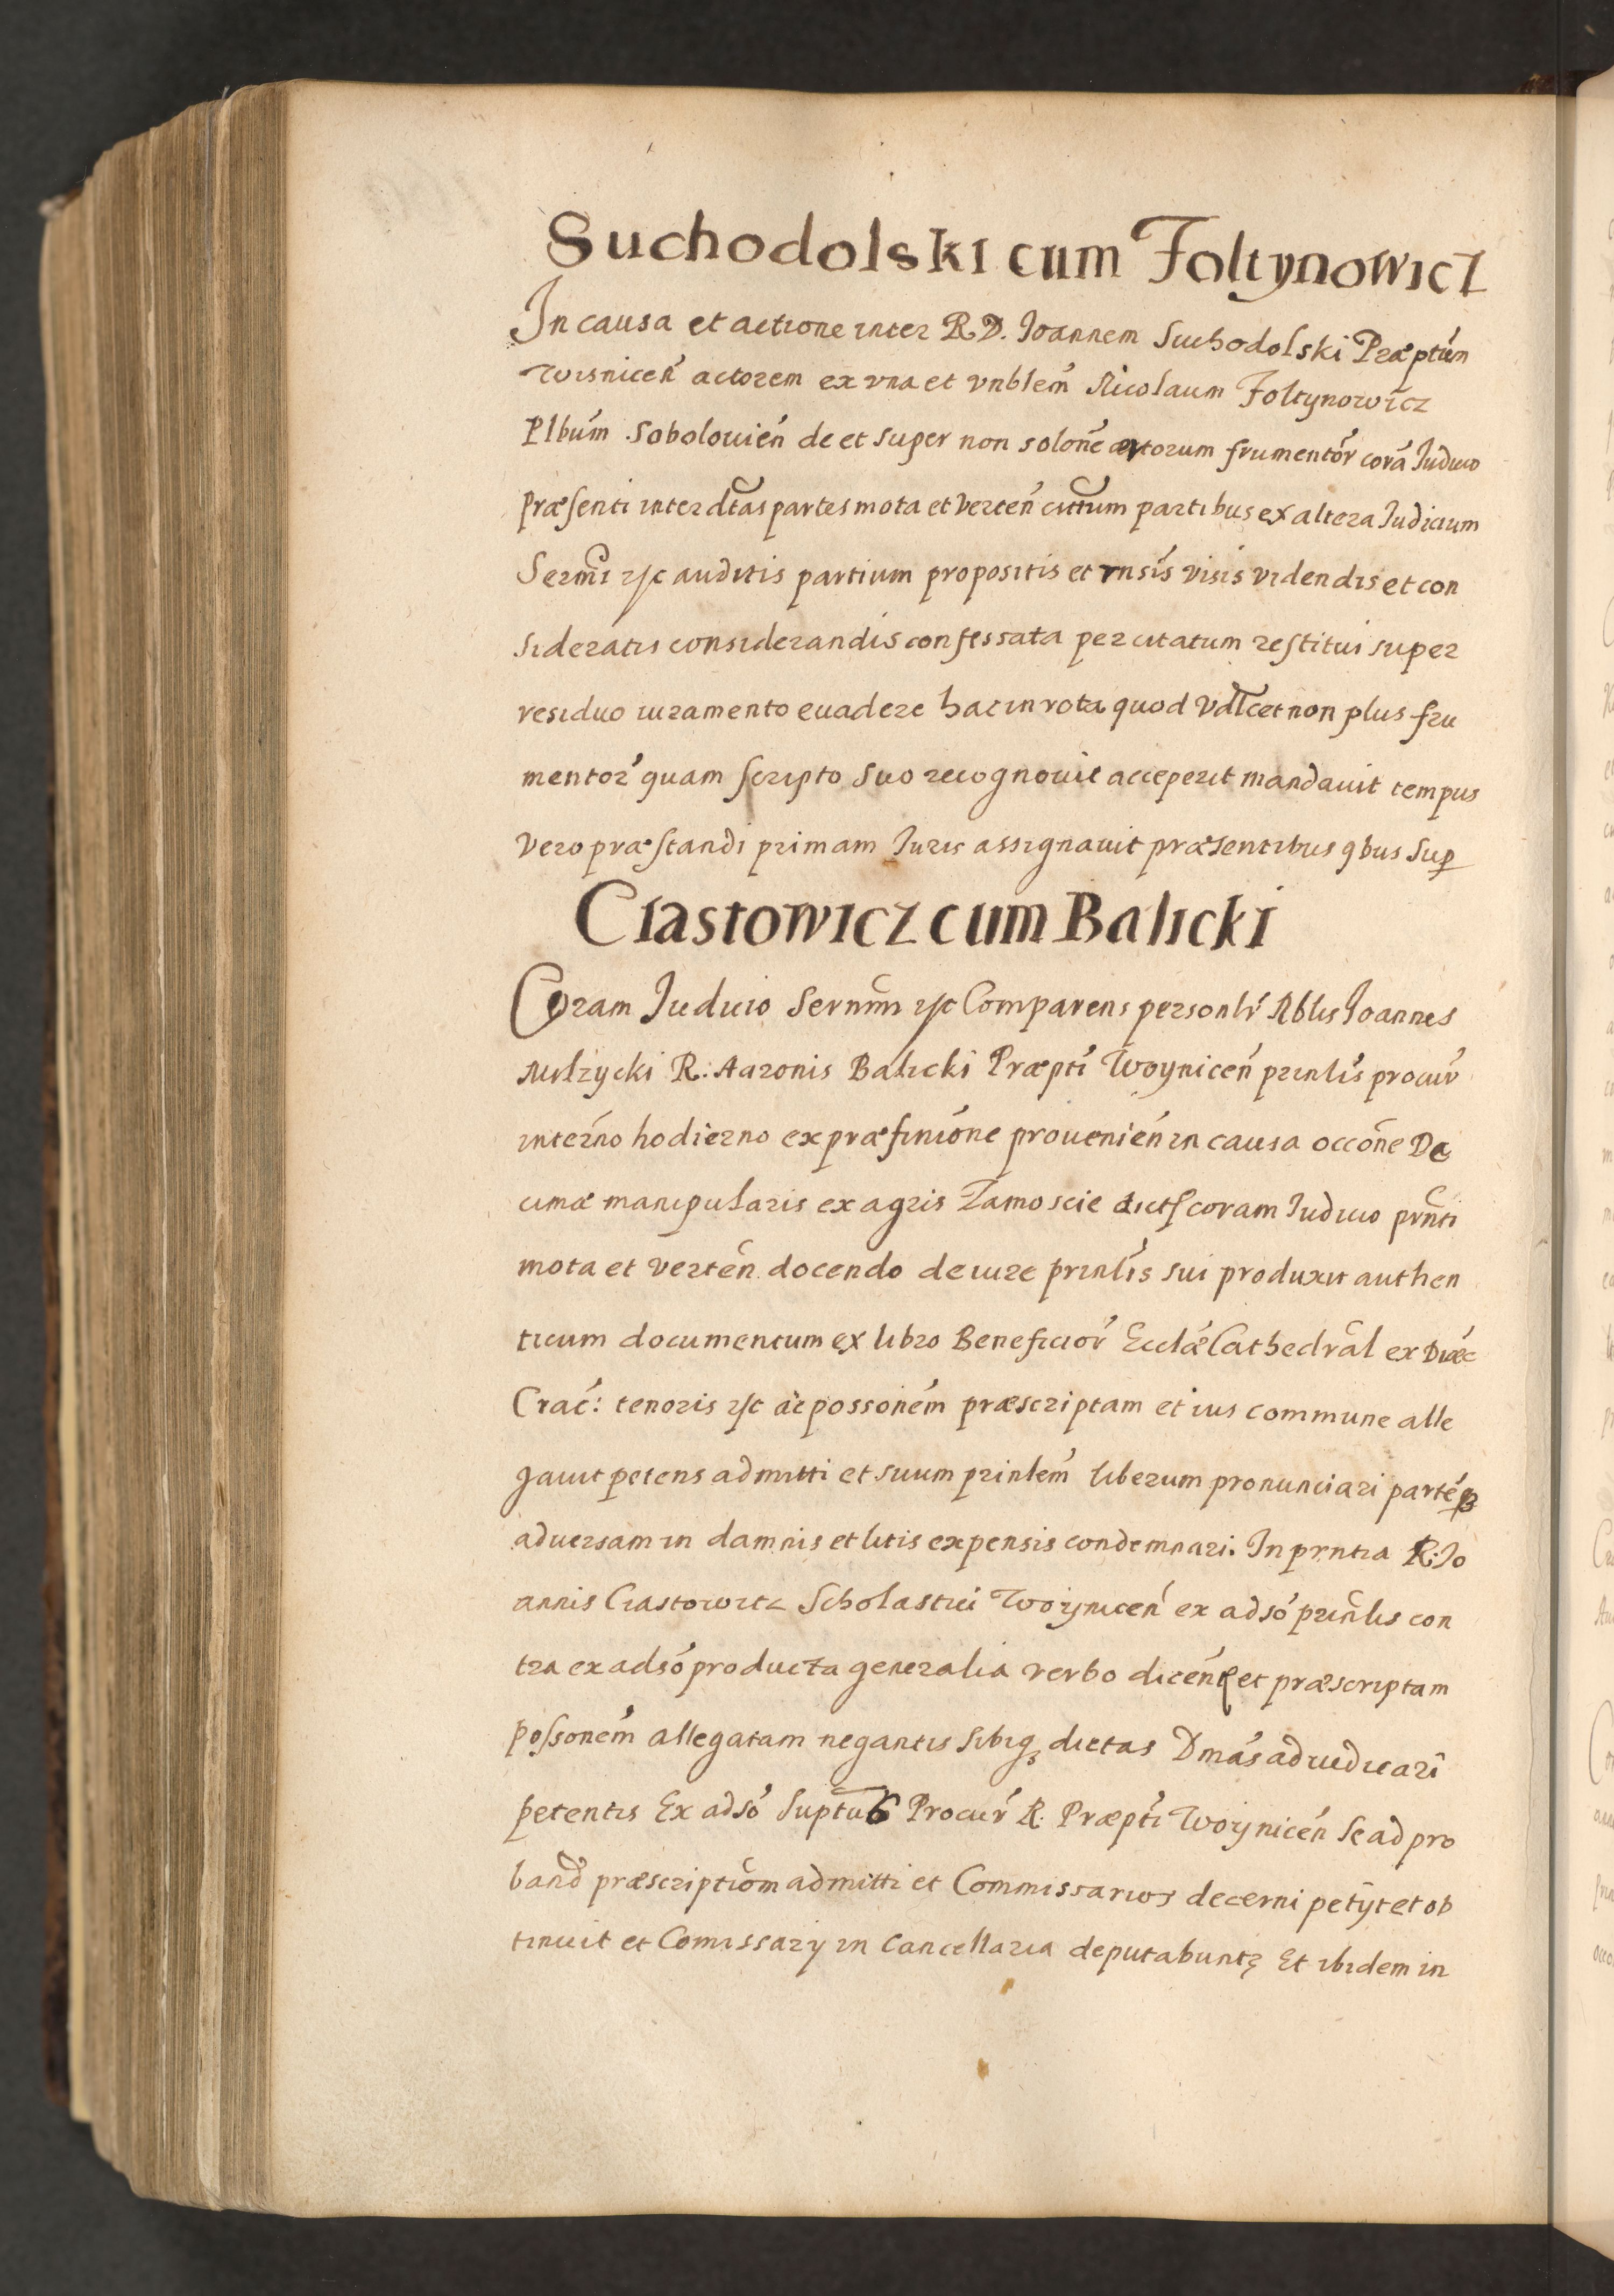 Suchodolski cum Foltynowicz
In causa et actione inter R.D. Joannem Suchodolski Præptúm
Wisniceń actorem ex vna et vnblém Nicolaum Foltynowicz
Plbúm Sobolouień de et super non soloné certorum frumentór corá Judicio
præsenti inter dtas partes mota et verteń citatum partibus ex altera Judicium
Sermi etc auditis partium propositis et rnsis visis videndis et con
sideratis considerandis confessata per citatum restitui super
residuo iuramento euadere hac in rota quod vdlcet non plus fru
mentor quam scripto suo recognouit acceperit mandauit tempus
vero præstandi primam Juris assignauit præsentibus qbus sup
Ciastowicz cum Balicki
Coram Judicio Sernmi etc Comparens personlr Nblis Joannes
Milzycki R. Aaronis Balicki Præpti Woyniceń prinlis procur
in termo hodierno ex præfinióne prouenień in causa occóne De
cimæ manipularis ex agris Zamoscie dict coram Judicio prnti
mota et verteń docendo de iure prinlis sui produxit authen
ticum documentum ex libro Beneficior Ecclæ Cathedral ex Diæc
Crac: tenoris etc ac possoném præscriptam et ius commune alle
gauit petens admitti et suum prinlem liberum pronunciari parté
aduersam in damnis et litis expensis condemnari. In prntia R. Jo
annis Ciastowicz Scholastici Woyniceń ex adsó prinlis con
tra ex adsó producta generalia verbo dicén et præscriptam
possoném allegatam negantis sibiq dictas Dmás adiudicari
petentis Ex adsó suptus Procur R. Præpti Woyniceń se ad pro
band præscriptióm admitti et Commissarios decerni petÿt et ob
tinuit et Comissarÿ in Cancellaria deputabunt Et ibidem in